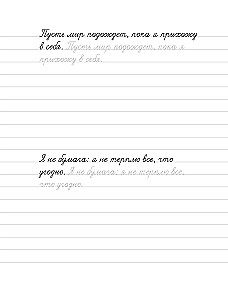 Пусть мир подождет, пока я прихожу
в себя. Пусть мир подождет, пока я
прихожу в себя.
Я не бумага: я не терплю все, что
угодно. Я не бумага: я не терплю все,
что угодно.